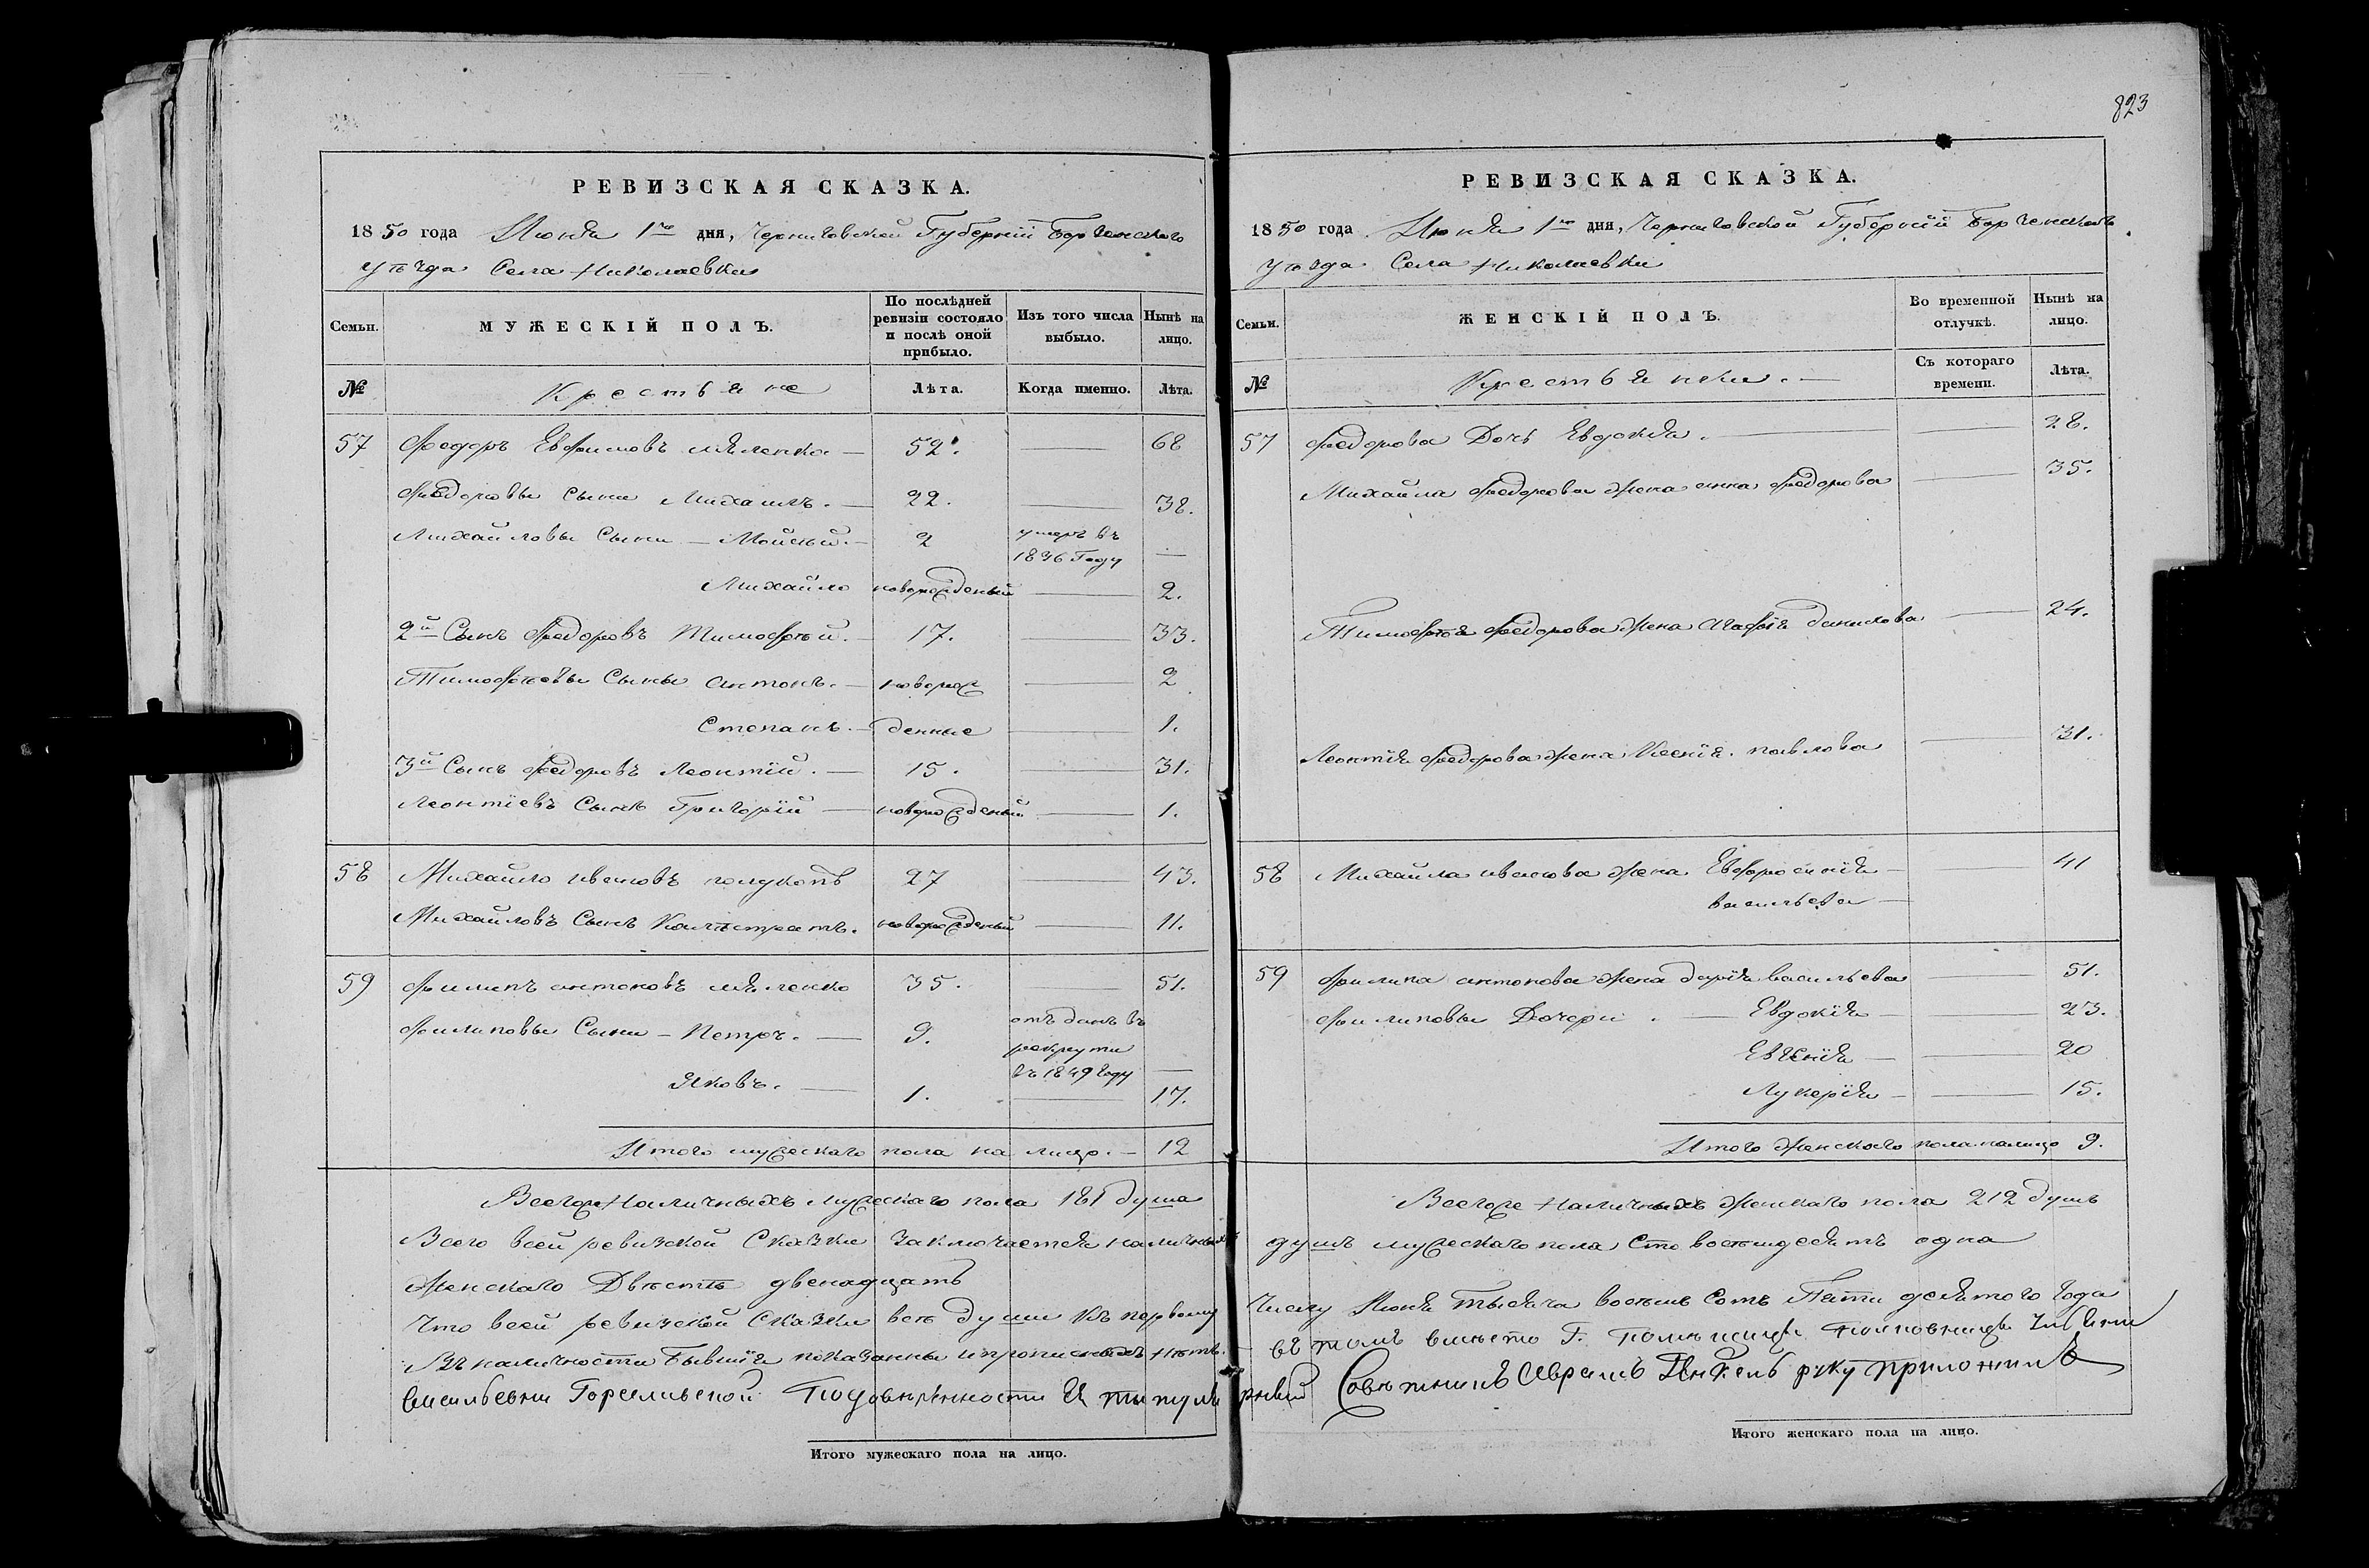 823
РЕВИЗСКАЯ СКАЗКА.
1850 года Июня 1го дня, Черниговской Губерніи Борзенскаго
уѣзда Села Николаевки
Семьи. МУЖЕСКІЙ ПОЛЪ. По послѣдней ревизіи состояло и послѣ оной прибыло. Изъ того числа выбыло. Нынѣ на лицо.
№ Крестьяне Лѣта. Когда именно. Лѣта.
57 Федоръ Евфимовъ Мяленко — 52. — 68
Федоровы Сыни Михаилъ. — 22. — 38.
Михайловы Сыни — Мойсѣй. — 2 умеръ въ 1836 Году —
Михайло новорожденый — 2.
2й Сынъ Федоровъ Тимофѣй. — 17. — 33.
Тимофѣевы Сыны Антонъ. — новорож — 2
Степанъ. — денные — 1.
3й Сынъ Федоровъ Леонтій. — 15. — 31.
Леонтіевъ Сынъ Григорій — новорожденый — 1.
58 Михайло Ивановъ 27 — 43.
Михайловъ Сынъ Калистратъ. новорожденый — 11.
59 Филипъ Антоновъ Мяленко 35. — 51.
Филиповы Сыни — Петръ. — 9. отъданъ въ рекрути въ 1849 году —
Яковъ. — 1. — 17.
Итого мужескаго пола на лицо. — 12
Всегоже Наличныхъ мужескаго пола 181 душа
РЕВИЗСКАЯ СКАЗКА.
1850 года Июня 1го дня, Черниговской Губерніи Борзенскаго
уѣзда Села Николаевки
Семьи. ЖЕНСКІЙ ПОЛЪ. Во временной отлучкѣ. Нынѣ на лицо.
№ Крестьянки. — Съ котораго времени. Лѣта.
57 Федорова Дочь Евдокія. — — 28.
Михайла Федорова жена Анна Федорова — 35.
Тимофѣя Федорова жена Агафія Данилова — 24.
Леонтія Федорова жена Ксенія Павлова — 31.
58 Михайла Иванова жена Евфросинія — — 41
Васильева —
59 Филипа Антонова жена Дарія Васильева — 51.
Филиповы Дочери. — Евдокія — 23.
Евгенія — — 20
Лукерія — — 15.
Итого женскаго пола налицо 9.
Всегоже Наличныхъ женскаго пола 212 душъ
Всего всей ревизской Сказки заключается наличныхъ душъ мужескаго пола Сто восемдесятъ одна
женскаго Двѣстѣ двенадцать
Что всей ревизской Сказки всѣ души къ первому числу Июня тысяча восемь Сотъ Пяти десятого года
Въ наличности Бывшія показанны и прописныхъ нѣтъ. — въ томъ вмѣсто Г. помѣщицы полковницы
Васильевни По довѣренности Ея титулярный Совѣтникъ руку приложилъ
Итого мужескаго пола на лицо.
Итого женскаго пола на лицо.